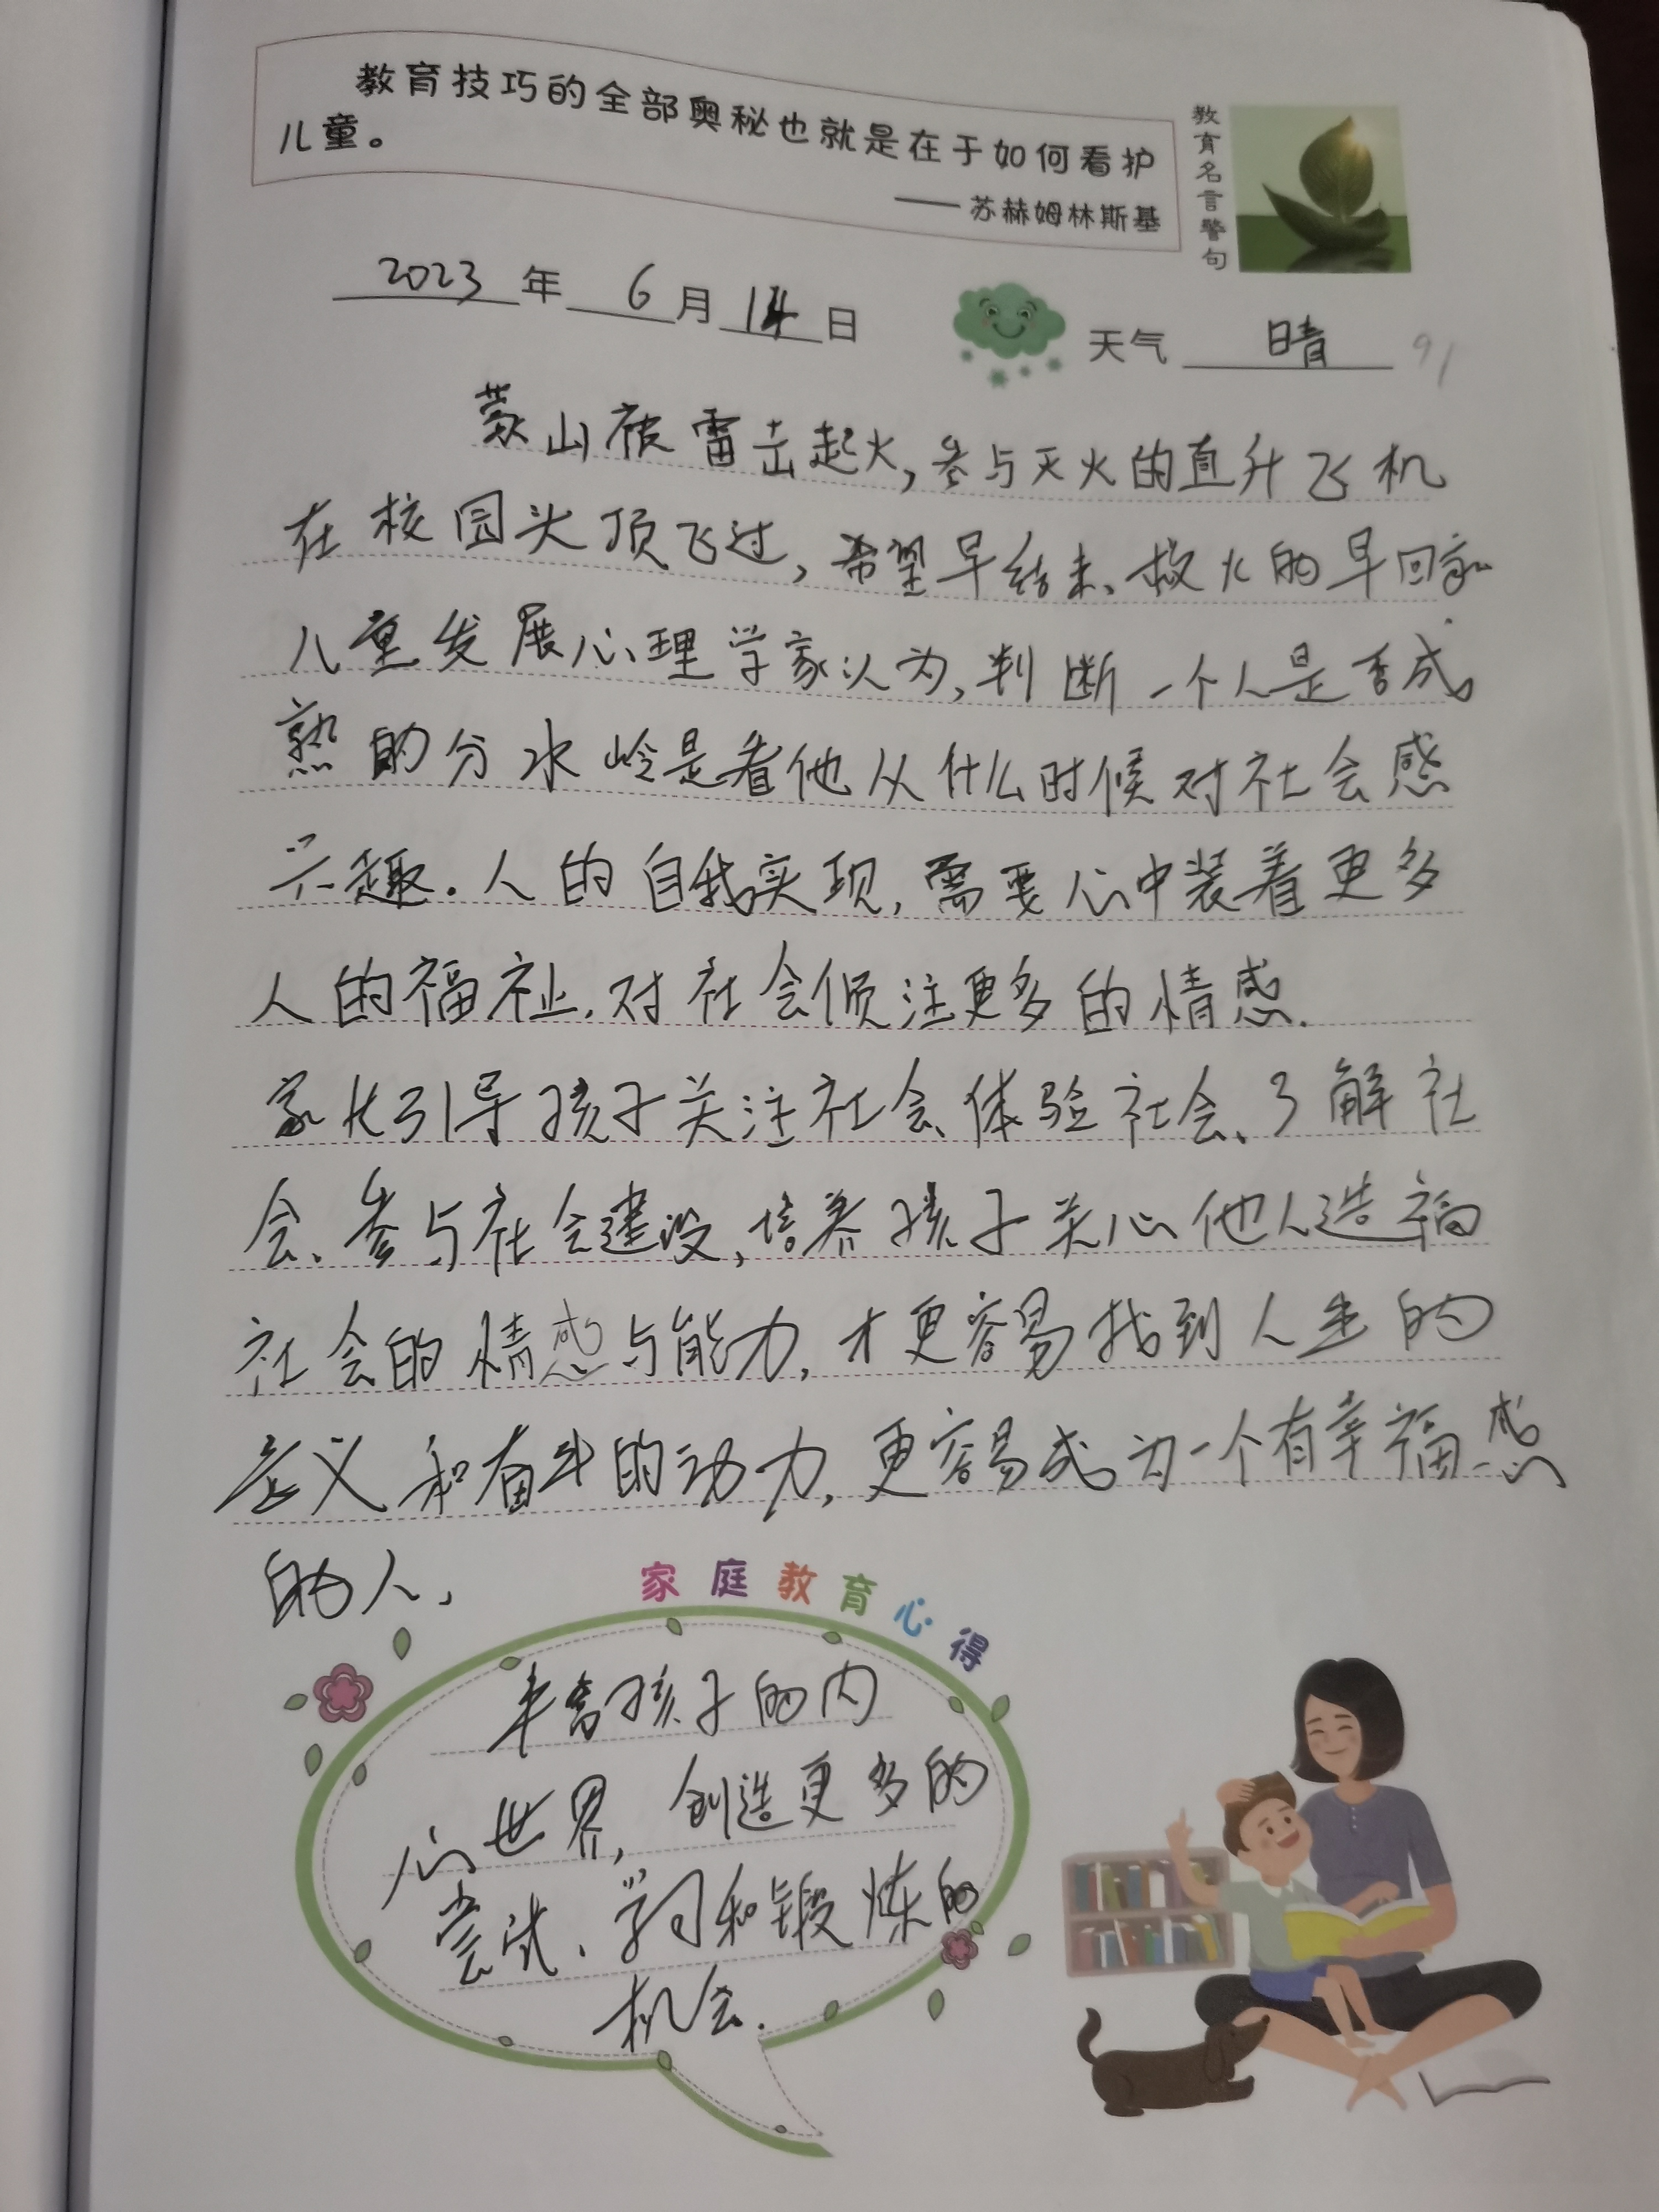 教育技巧的全部奥秘也就是在于如何看护
儿童。
——苏赫姆林斯基
教育名言警句
2023年6月14日
天气 晴
91
蒙山被雷击起火,参与灭火的直升飞机
在校园头顶飞过,希望早结束、救火的早回家.
儿童发展心理学家认为,判断一个人是否成
熟的分水岭是看他从什么时候对社会感
兴趣.人的自我实现,需要心中装着更多
人的福祉.对社会倾注更多的情感.
家长引导孩子关注社会、体验社会、了解社
会、参与社会建设,培养孩子关心他人造福
社会的情感与能力,才更容易找到人生的
意义和奋斗的动力,更容易成为一个有幸福感
的人、
家庭教育心得
丰富孩子的内
心世界,创造更多的
尝试、学习和锻炼的
机会.